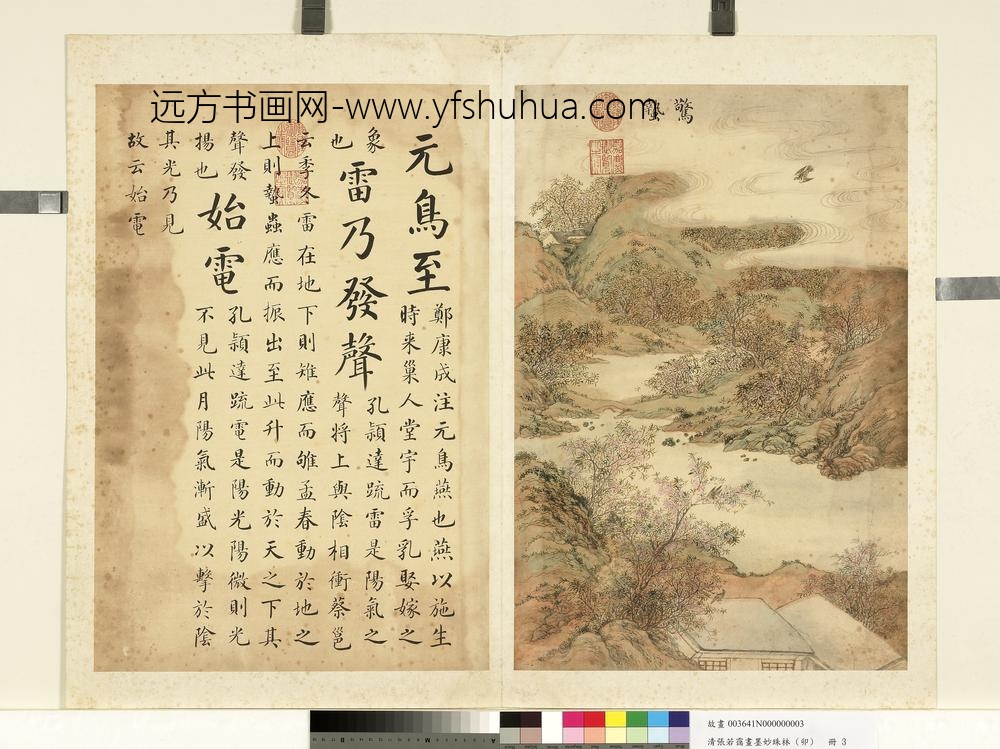 远方书画网-www.yfshuhua.com
驚蟄
元鳥至
鄭康成注元鳥燕也燕以施生
時來巢人堂宇而孚乳娶嫁之
象
也
雷乃發聲
孔穎達疏雷是陽氣之
聲將上與陰相衝蔡邕
云季冬雷在地下則雉應而雊孟春動於地之
上則蟄蟲應而振出至此升而動於天之下其
聲發
揚也
始電
孔穎達疏電是陽光陽微則光
不見此月陽氣漸盛以擊於陰
其光乃見
故云始電
故畫 003641N000000003
清張若靄畫墨妙珠林（卯） 冊 3